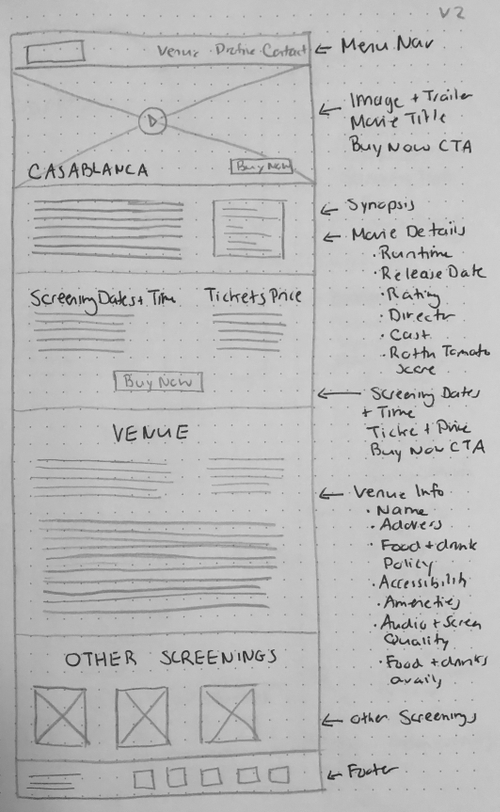 V2
Venue · Dateline · Contact
← Menu Nav
← Image + Trailer
Movie Title
Buy Now CTA
CASABLANCA
Buy Now
← Synopsis
← Movie Details
· Runtime
· Release Date
· Rating
· Director
· Cast
· Rottn Tomato
Score
Screening Dates + Time
Tickets Price
Buy Now
← Screening Dates
+ Time
Ticket + Price
Buy Now CTA
VENUE
← Venue Info
· Name
· Address
· Food + drink
Policy
· Accessibility
· Ameneties
· Audio + Screen
Quality
· Food + drinks
avails
OTHER SCREENINGS
← Other Screenings
← Footer